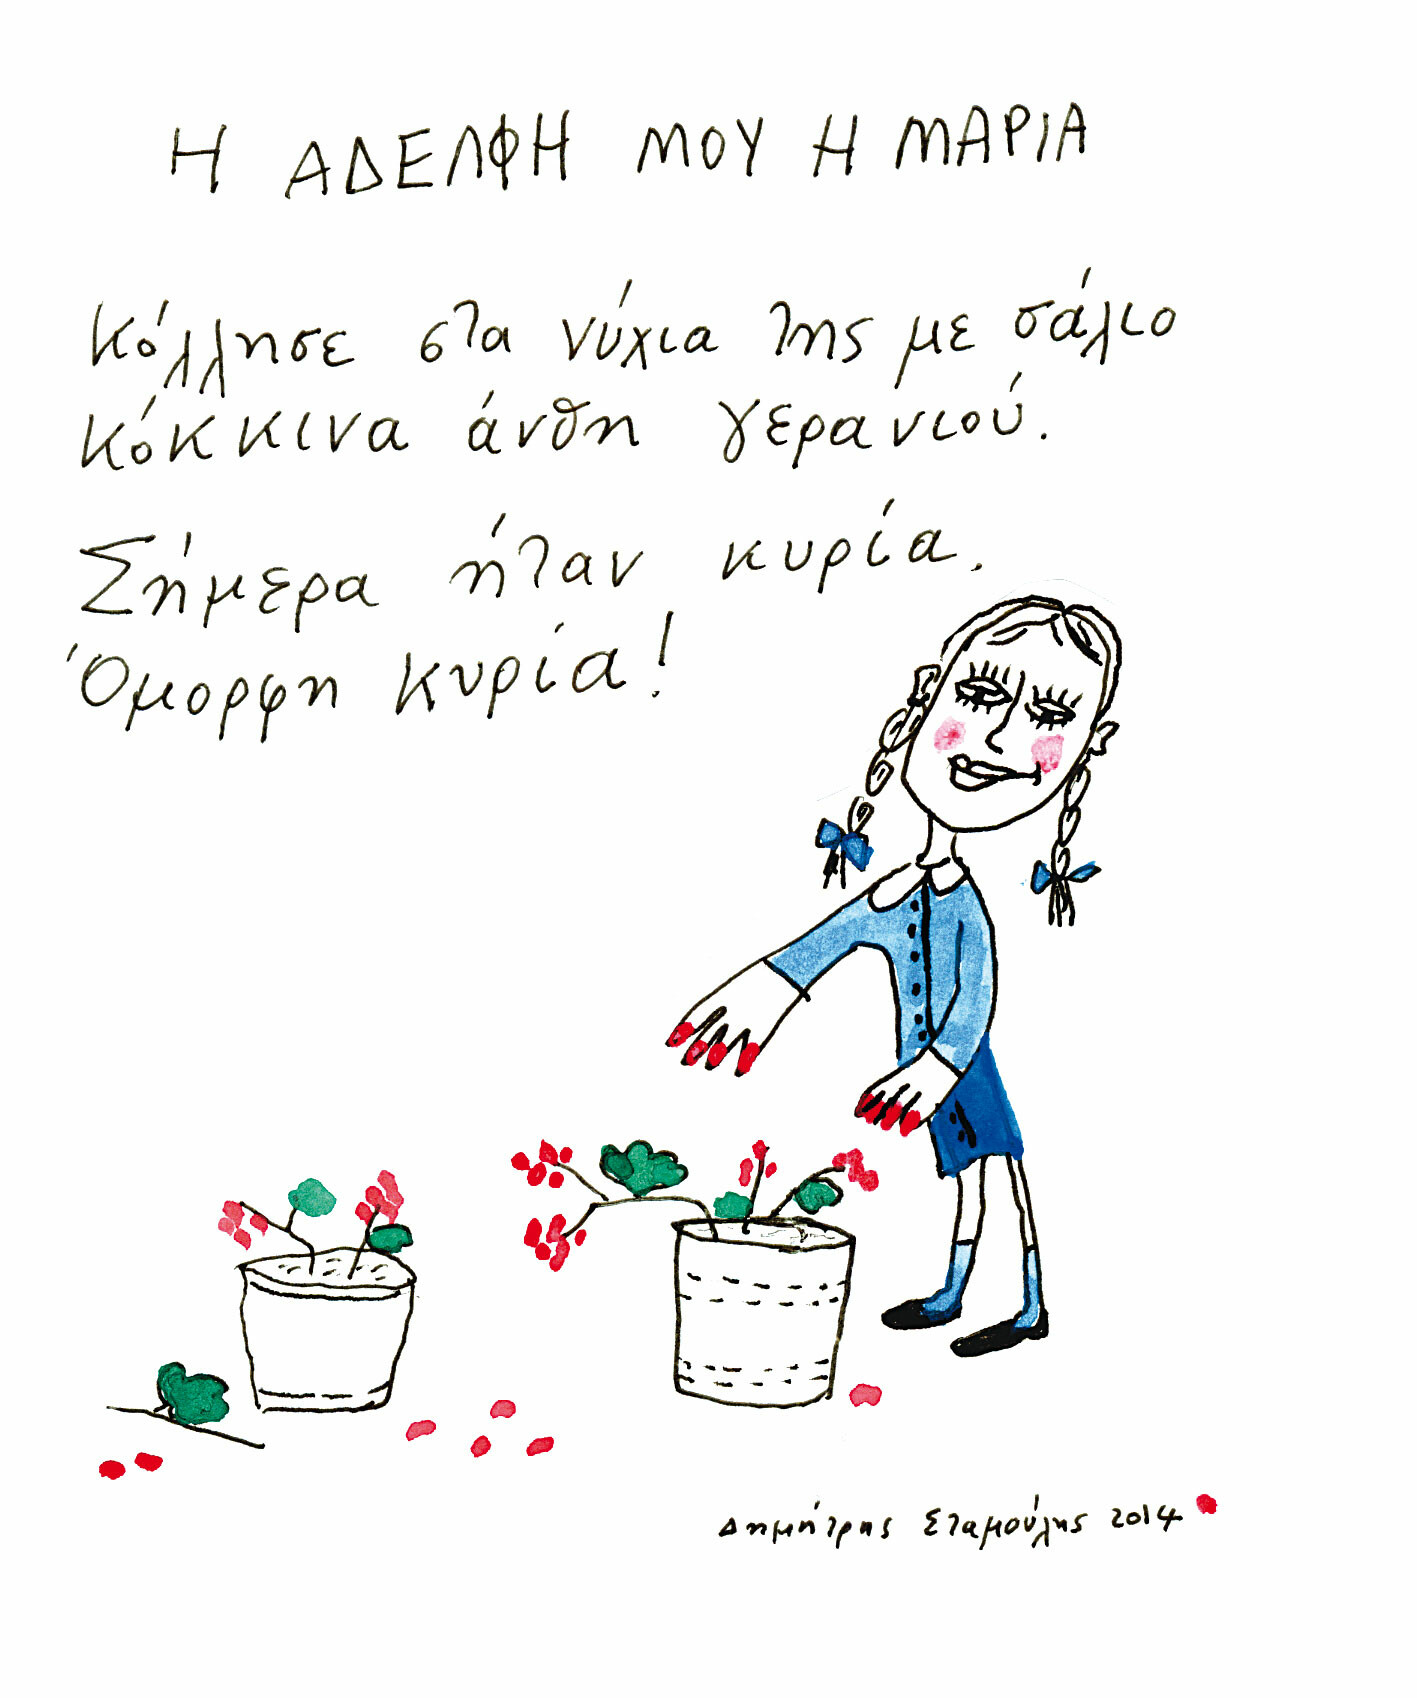 Η ΑΔΕΛΦΗ ΜΟΥ Η ΜΑΡΙΑ
Κόλλησε στα νύχια της με σάλιο
κόκκινα άνθη γερανιού.
Σήμερα ήταν κυρία.
Όμορφη κυρία!
Δημήτρης Σταμούλης 2014